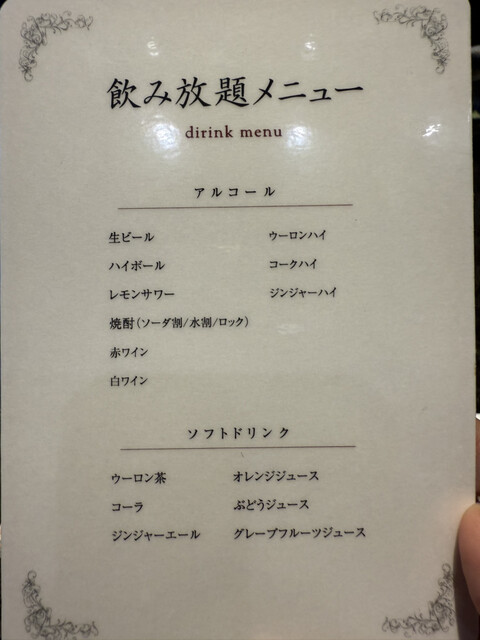 飲み放題メニュー
dirink menu
アルコール
生ビール
ハイボール
レモンサワー
焼酎(ソーダ割/水割/ロック)
赤ワイン
白ワイン
ウーロンハイ
コークハイ
ジンジャーハイ
ソフトドリンク
ウーロン茶
コーラ
ジンジャーエール
オレンジジュース
ぶどうジュース
グレープフルーツジュース